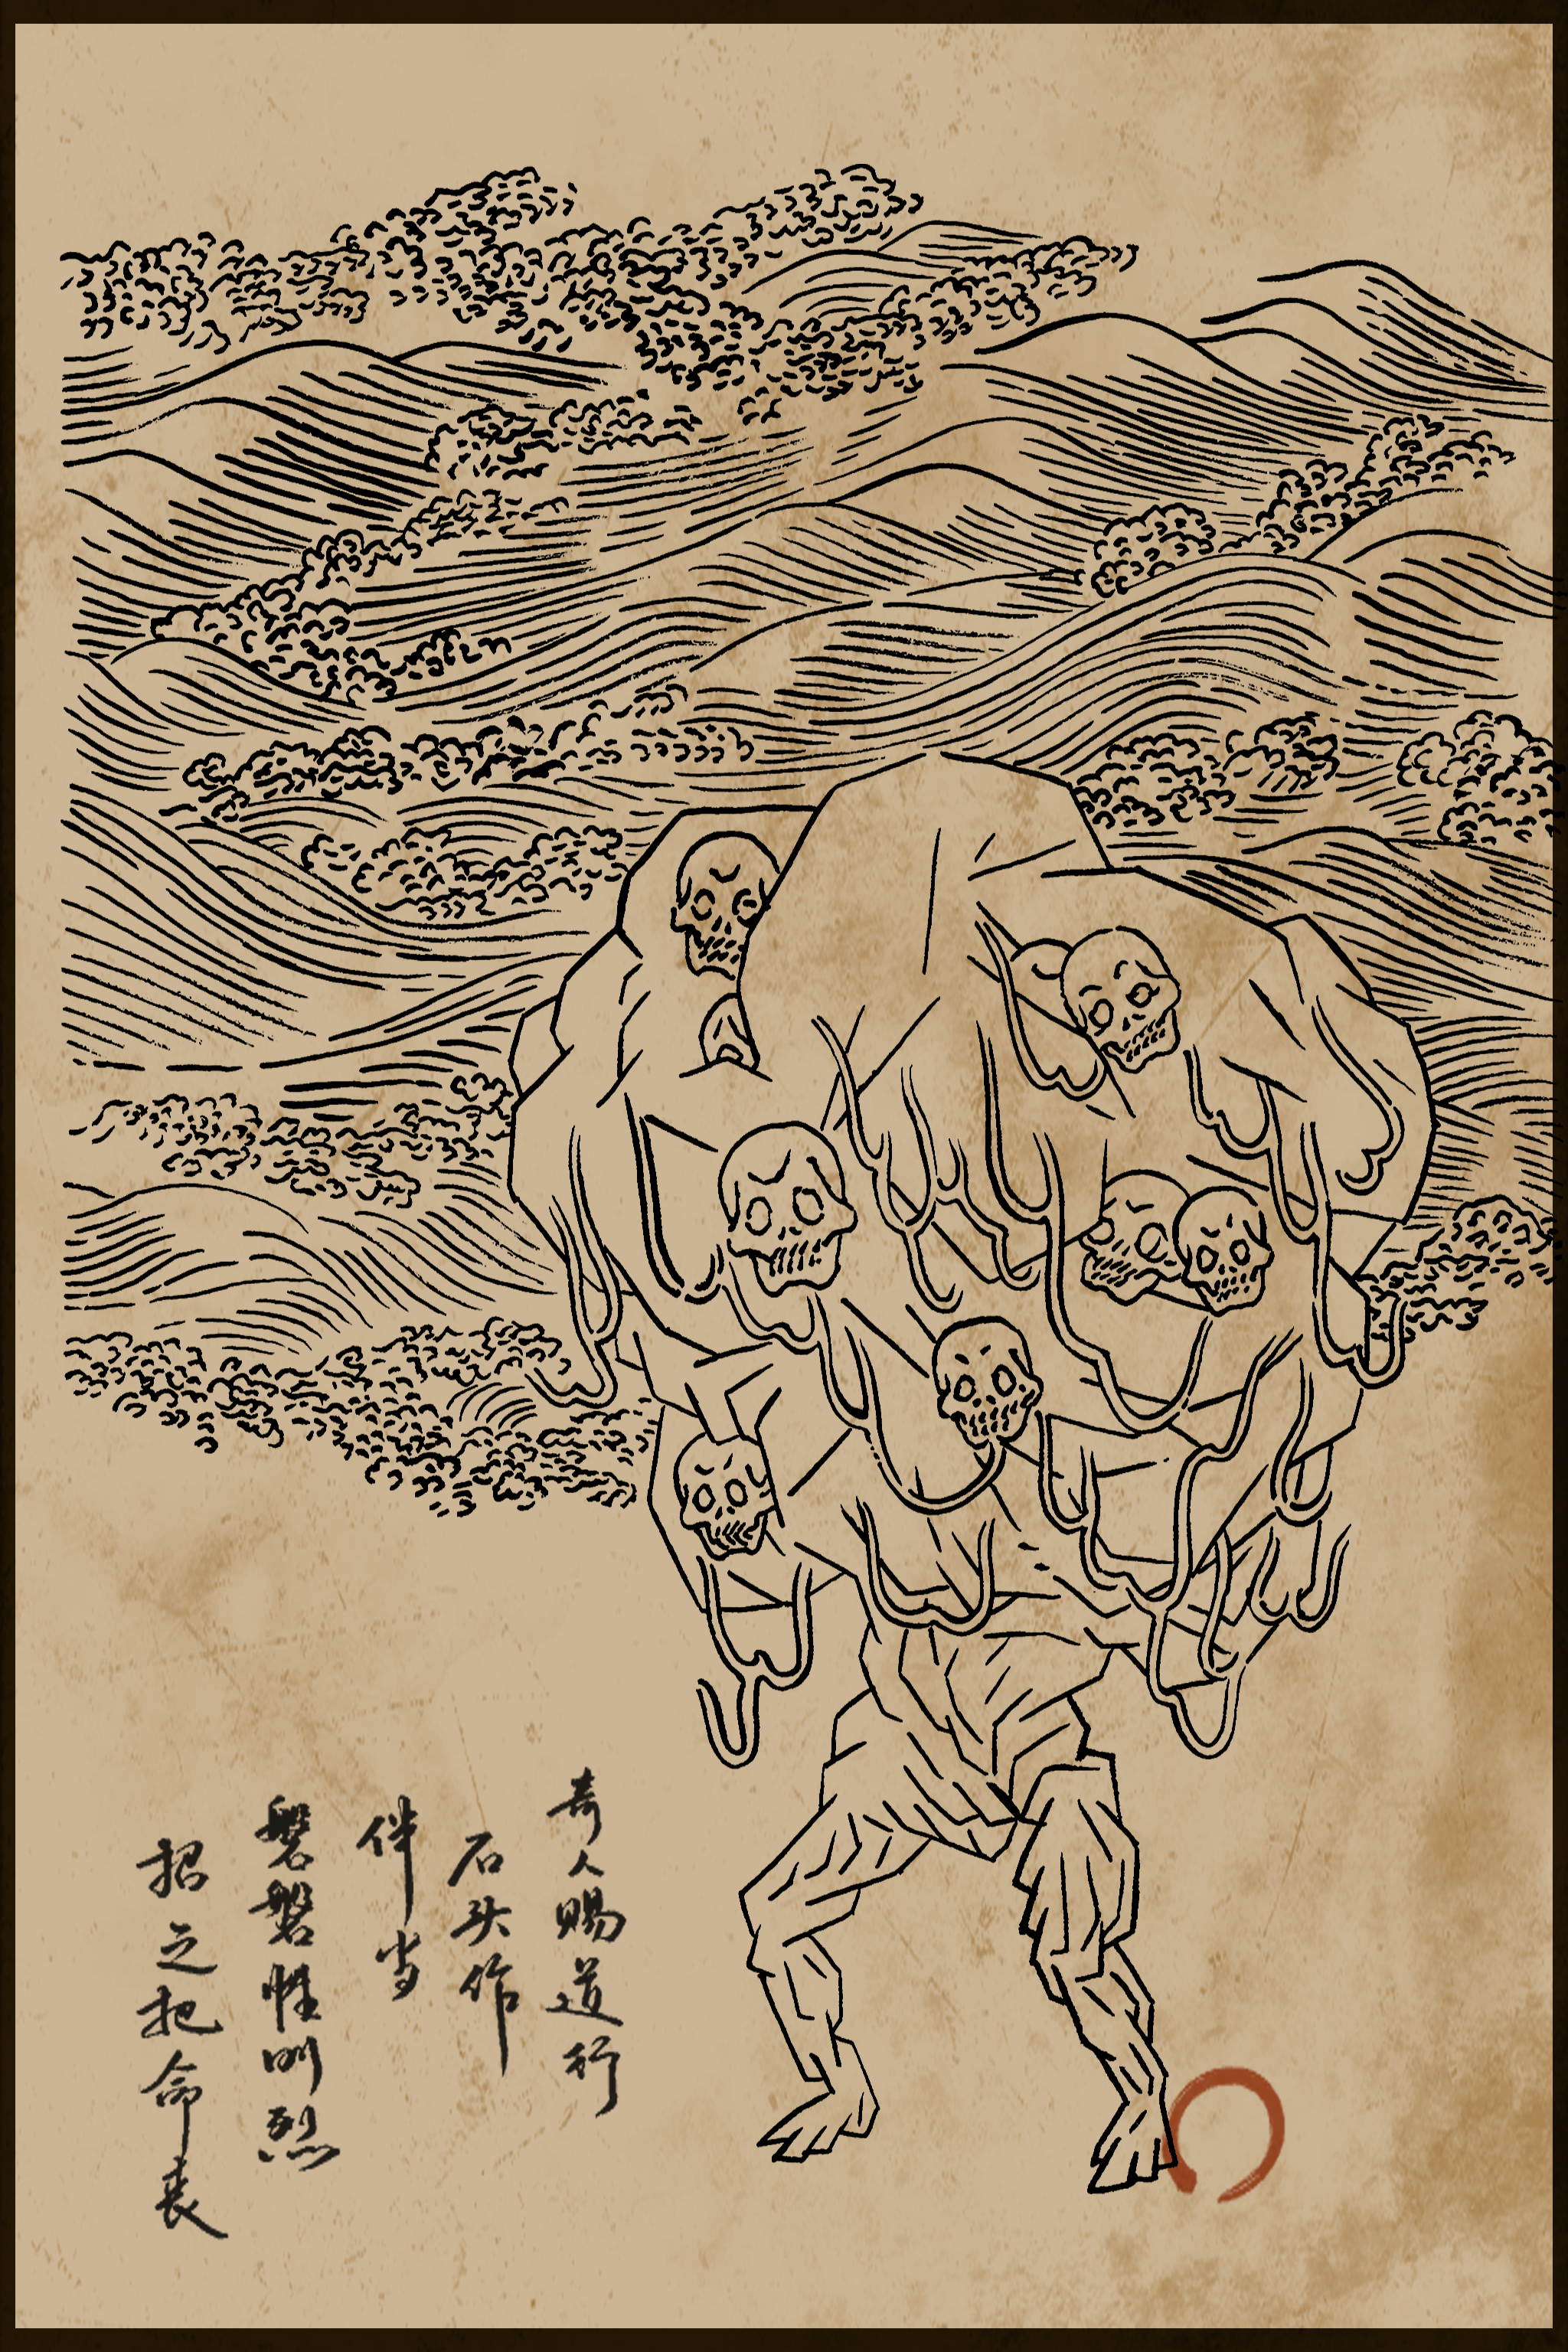 奇人赐道行
石头作
伴当
磐磐性刚烈
招之把命丧